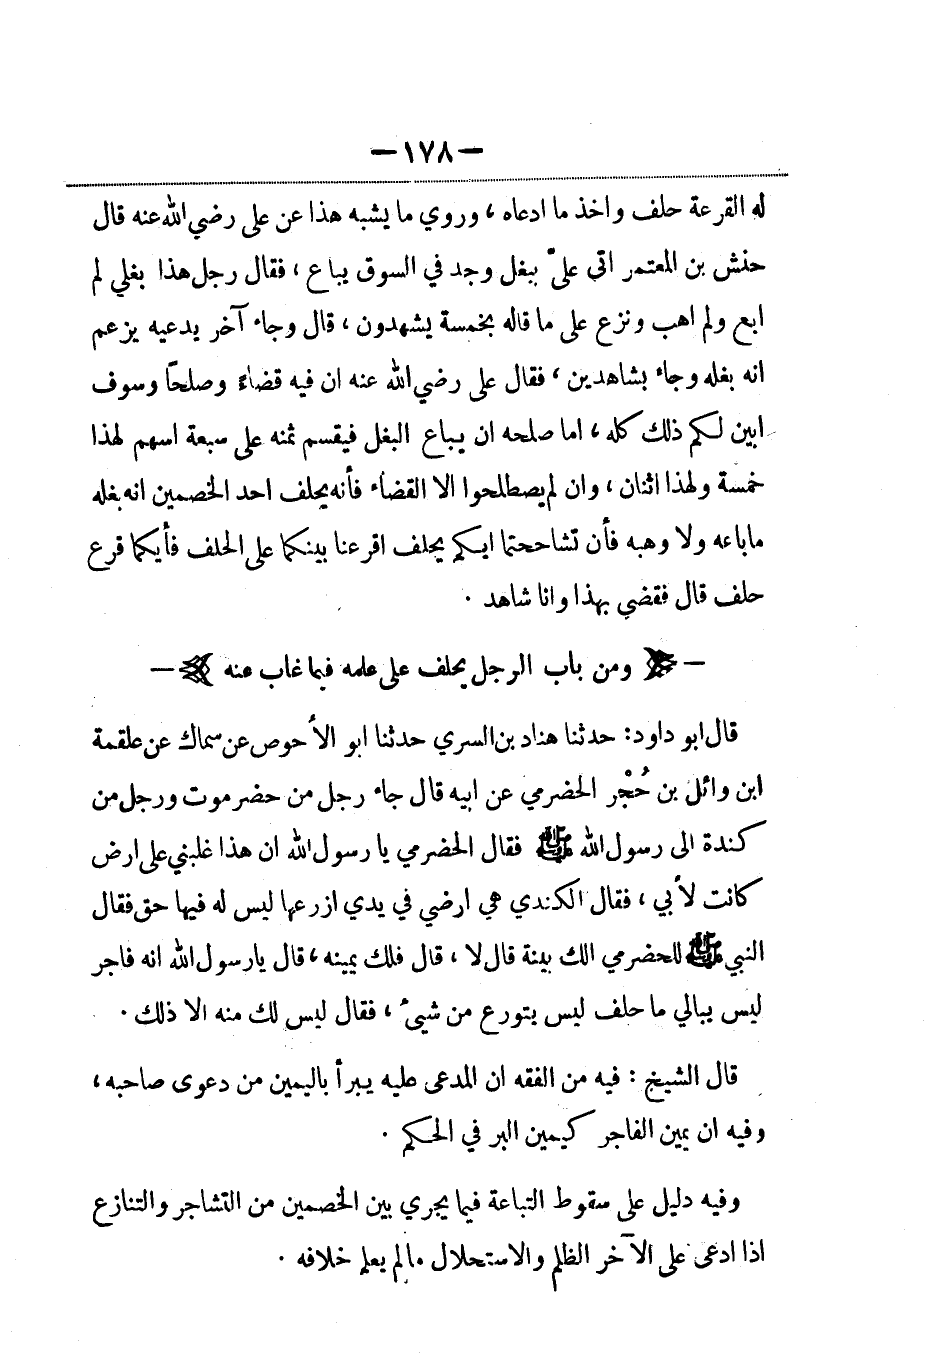 —١٧٨—
له القرعة حلف واخذ ما ادعاه ، وروي ما يشبه هذا عن علي رضي الله عنه قال
حنش بن المعتمر اتى عليّ ببغل وجد في السوق يباع ، فقال رجل هذا بغلي لم
ابع ولم اهب ونزع على ما قاله بخمسة يشهدون ، قال وجاء آخر يدعيه يزعم
انه بغله وجاء بشاهدين ، فقال علي رضي الله عنه ان فيه قضاءً وصلحاً وسوف
ابين لكم ذلك كله ، اما صلحه ان يباع البغل فيقسم ثمنه على سبعة اسهم لهذا
خمسة ولهذا اثنان ، وان لم يصطلحوا الا القضاء فأنه يحلف احد الخصمين انه بغله
ماباعه ولا وهبه فأن تشاححتما ايكم يحلف اقرعنا بينكما على الحلف فأيكما قرع
حلف قال فقضي بهذا وانا شاهد .
— ومن باب الرجل يحلف على علمه فيما غاب عنه —
قال ابو داود: حدثنا هناد بن السري حدثنا ابو الأحوص عن سماك عن علقمة
ابن وائل بن حُجْر الحضرمي عن ابيه قال جاء رجل من حضرموت ورجل من
كندة الى رسول الله ﷺ فقال الحضرمي يا رسول الله ان هذا غلبني على ارض
كانت لأبي ، فقال الكندي هي ارضي في يدي ازرعها ليس له فيها حق فقال
النبي ﷺ للحضرمي الك بينة قال لا ، قال فلك يمينه ، قال يارسول الله انه فاجر
ليس يبالي ما حلف ليس يتورع من شيئ ، فقال ليس لك منه الا ذلك .
قال الشيخ : فيه من الفقه ان المدعى عليه يبرأ باليمين من دعوى صاحبه ،
وفيه ان يمين الفاجر كيمين البر في الحكم .
وفيه دليل على سقوط التباعة فيما يجري بين الخصمين من التشاجر والتنازع
اذا ادعى على الآخر الظلم والاستحلال مالم يعلم خلافه .